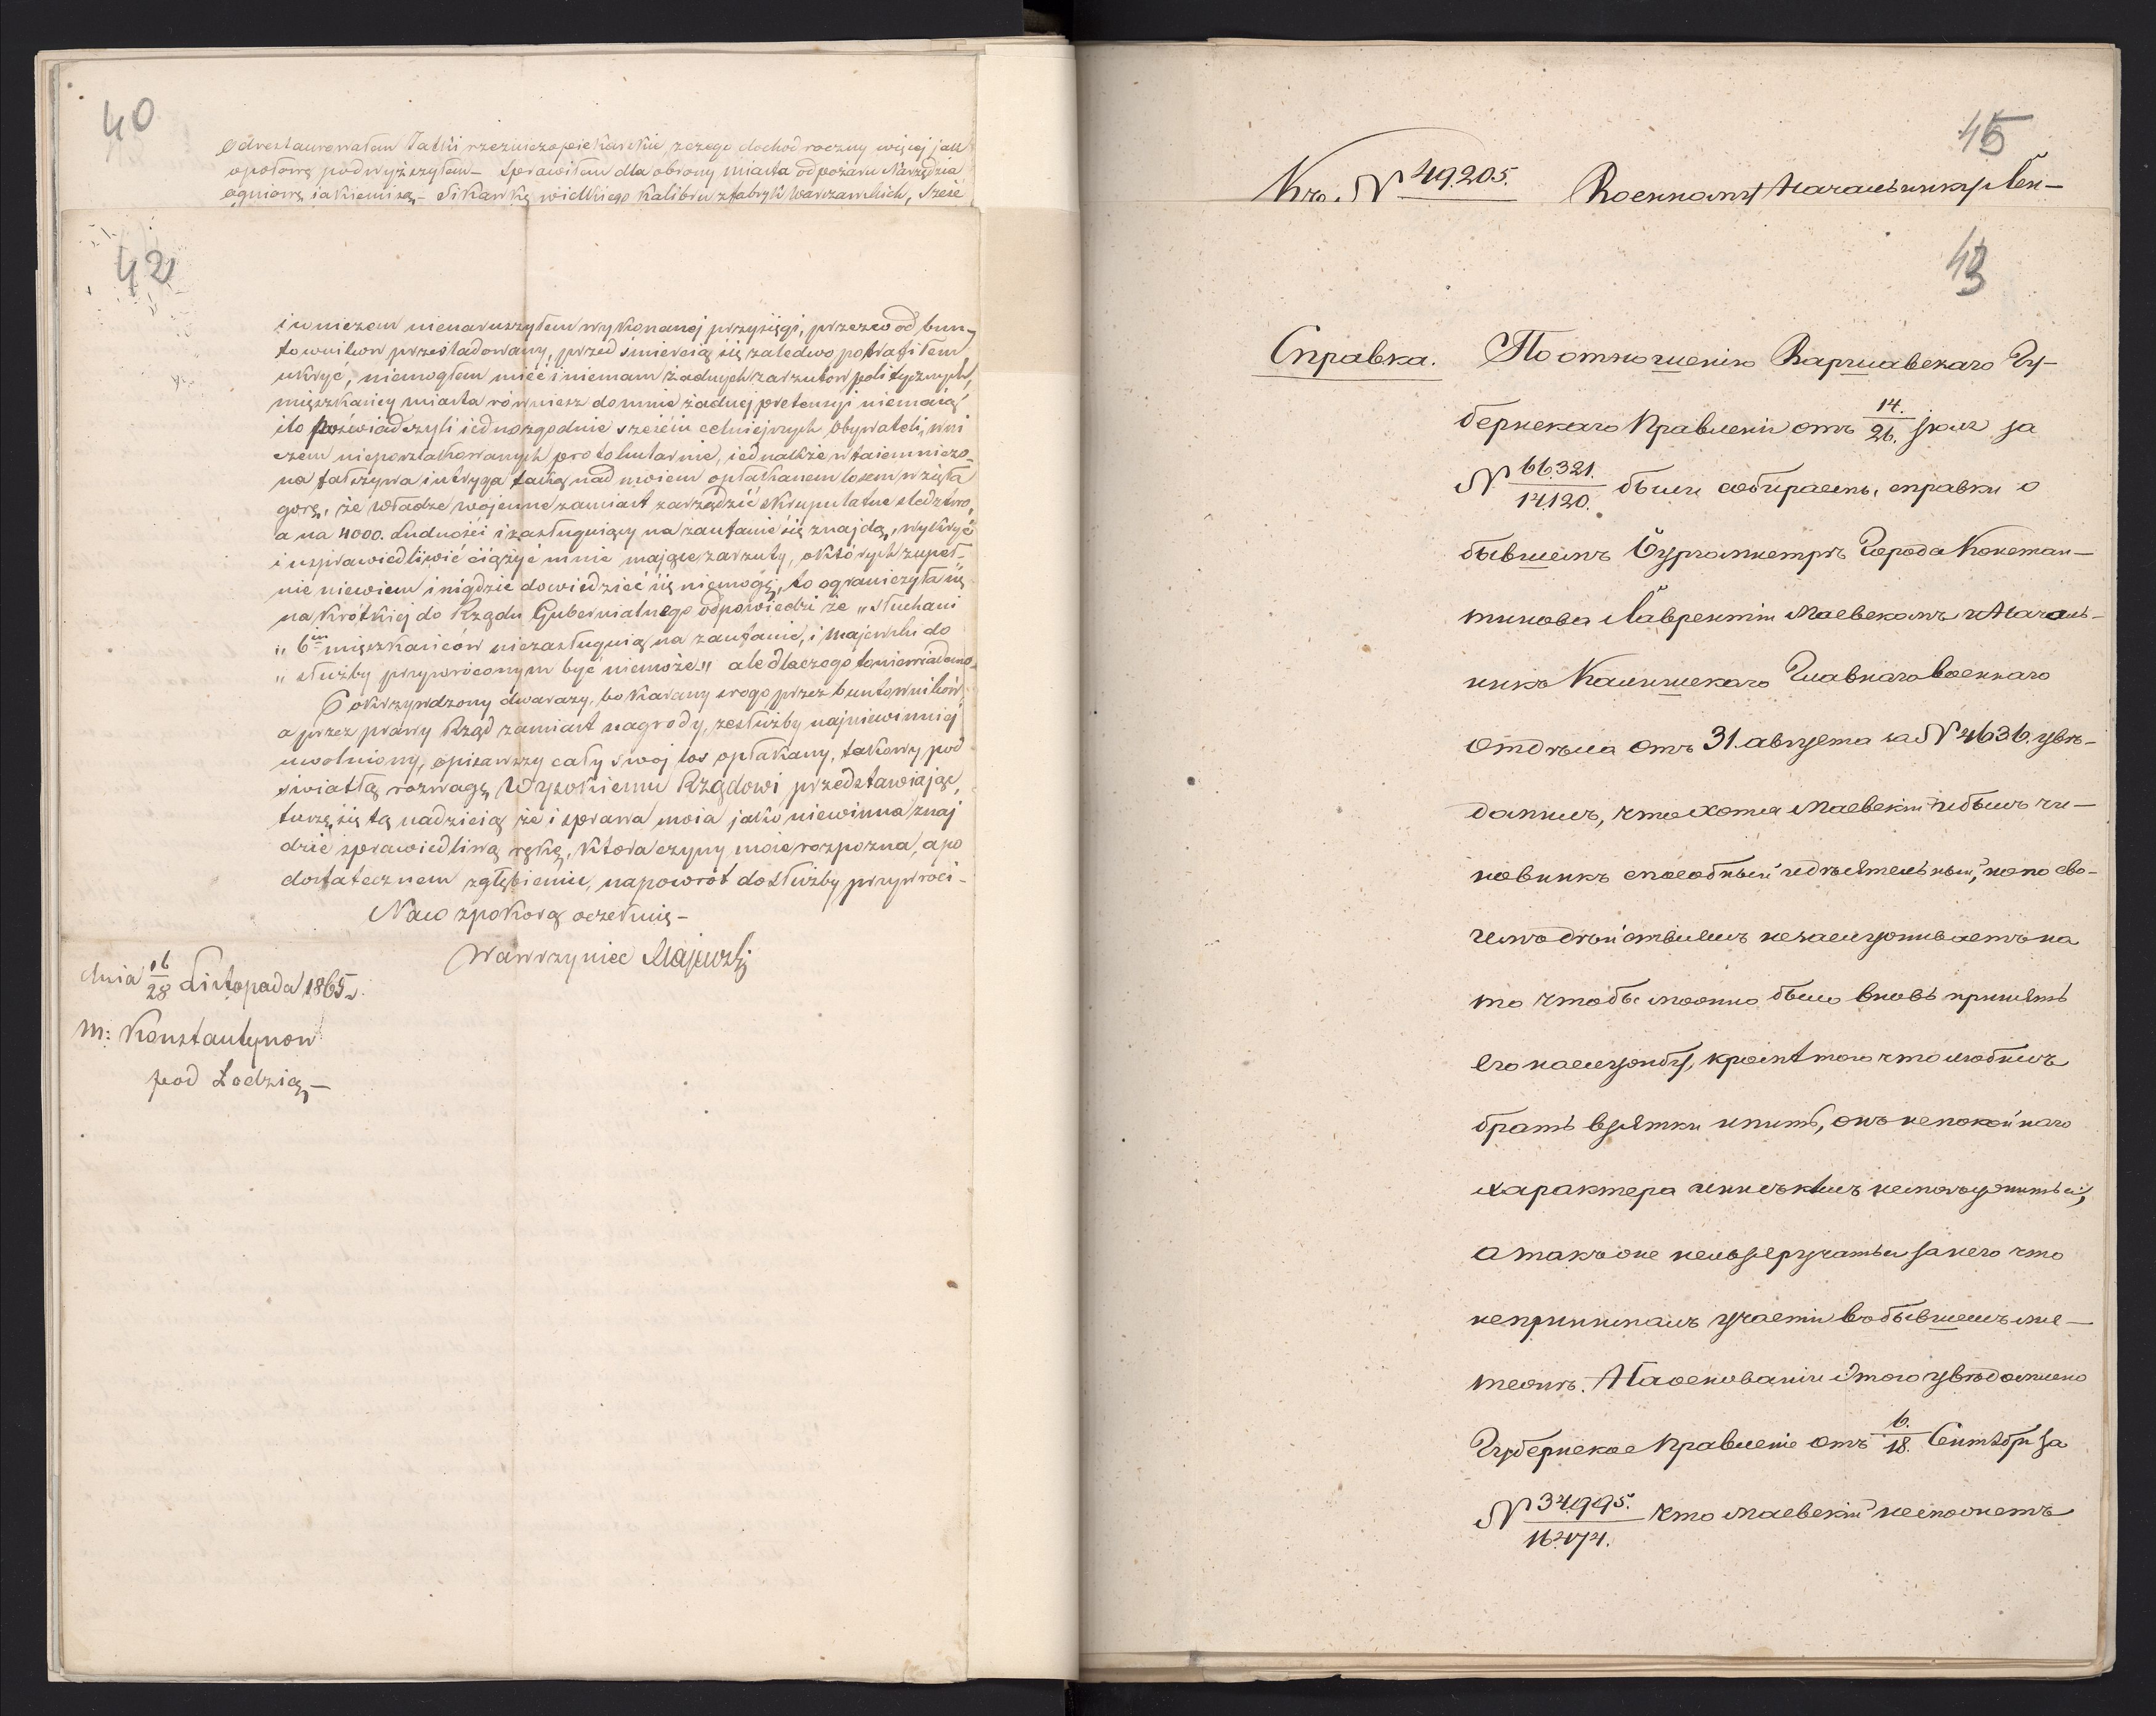 40
Odrestaurowałem Jatki rzezniczopiekarskie, z czego dochod roczny więcej jak
opołowę podwyższyłem – Sprawiłem dla obrony miasta od pożaru Narzędzia
ogniowe iakiemi są – Sikawkę wielkiego Kalibru z fabryk Warszawskich, Sześć
42
i w niczem nienaruszyłem wykonanej przysięgi, przezco od bun-
towników prześladowany, przed śmiercią się zaledwo potrafiłem
ukryć, niemogłem mieć i niemam żadnych zarzutow politycznych,
mięszkańcy miasta rówmiesz domnie żadnej pretensyi niemaią
i to poświadczyli iednozgodnie sześciu celniejszych Obywateli, w ni
czem nieposzlakowanych protokularnie, iednakże w taiemniczo-
na fałszywa intryga taką nad moiem opłakanem losem wzięła
gorę, że Władze wojenne zamiast zarządzić skrupulatne sledztwo,
a na 4000. Ludności i zasługuiący na zaufanie się znajdą, wykryć
i usprawiedliwić ciążyć mnie mające zarzuty, o których zupeł-
nie niewiem i nigdzie dowiedzieć się niemogę, to ograniczyła się
na krótkiej do Rządu Gubernialnego odpowiedzi że „słuchani
„ 6ciu mięszkańców niezasługuią na zaufanie, i Majewski do
„ służby przywróconym być niemoże” ale dlaczego to niewiadomo.
Pokrzywdzony dwarazy, bo Karany srogo przez buntowników
a przez prawy Rząd zamiast nagrody, ze służby najniewinniej
uwolniony, opisawszy cały swoj los opłakany, takowy pod
światłą rozwagę Wysokiemu Rządowi przedstawiając,
tuszę się tą nadzieią że i sprawa moia jako niewinna znaj
dzie sprawiedliwą rękę, Ktora czyny moie rozpozna, a po
dostatecznem zgłębieniu, napowrót do służby przywróci –
Naco zpokorą oczekuię –
Wawrzyniec Majewski
dnia 16/28 Listopada 1865 r.
m: Konstantynow
pod Łodzią –
45
Къ. № 49.205. Военному Начальнику Лен-
43
Справка. По отношенію Варшавскаго Гу-
бернскаго Правленія отъ 14./26. іюля за
№ 66.321./14.120. были собираемы, справки о
бывшемъ Бургомистръ Города Констан-
тинова Лаврентіи Маевскомъ и Началь-
никъ Калишскаго Главнаго Военнаго
Отдѣла отъ 31. августа за № 4636. увѣ-
домилъ, что хотя Маевскій и былъ чи-
новникъ способный и дѣятельный, но по сво-
имъ дѣйствіямъ незаслуживаетъ на
то чтобы можно было вновь принять
его на службу, кромѣ того что любилъ
брать взятки и пить, онъ непокойнаго
характера и ни съ кѣмъ не могъ ужиться,
а также нельзя ручаться за него что
непринималъ участія въ бывшемъ мя-
тежѣ. На основаніи этого увѣдомлено
Губернское Правленіе отъ 6./18. Сентября за
№ 34.995./16.474. что Маевскій неможетъ